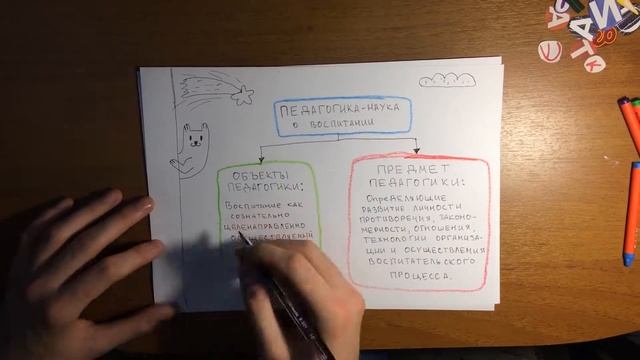 ПЕДАГОГИКА-НАУКА
О ВОСПИТАНИИ
ОБЪЕКТЫ
ПЕДАГОГИКИ:
Воспитание как
сознательно
целенаправленно
осуществляемый
ПРЕДМЕТ
ПЕДАГОГИКИ:
Определяющие
развитие личности
противоречия, законо-
мерности, отношения,
технологии организа-
ции и осуществления
воспитательского
процесса.